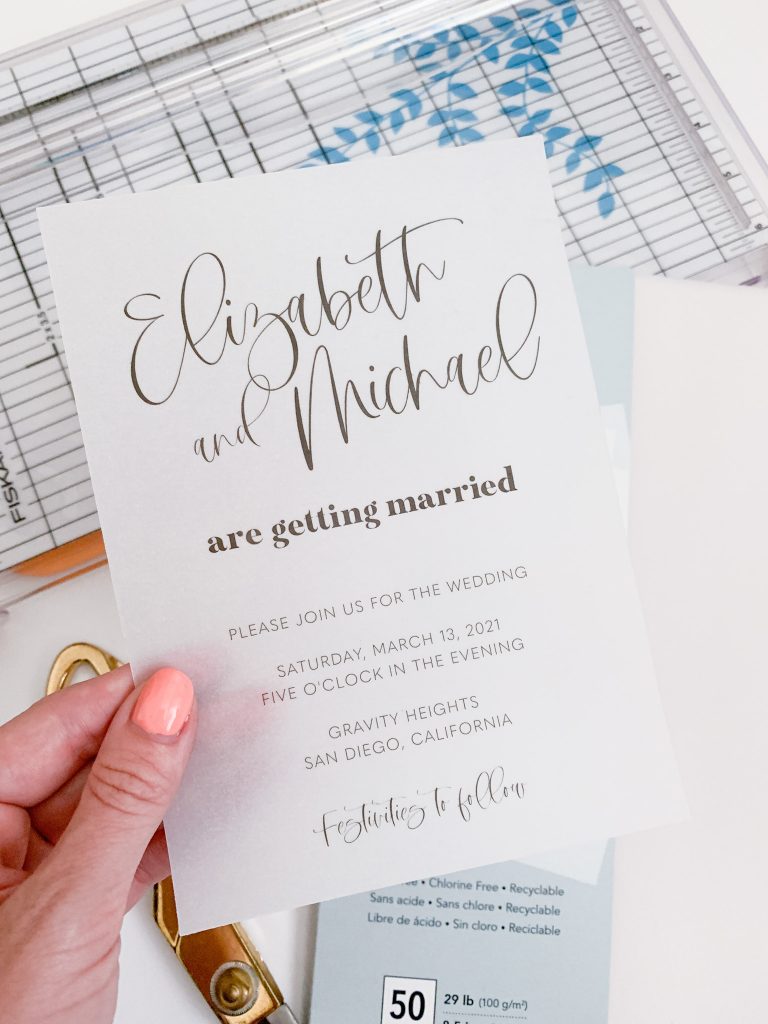 Elizabeth
and Michael
are getting married
PLEASE JOIN US FOR THE WEDDING
SATURDAY, MARCH 13, 2021
FIVE O'CLOCK IN THE EVENING
GRAVITY HEIGHTS
SAN DIEGO, CALIFORNIA
Festivities to follow
FISKA
• Chlorine Free • Recyclable
Sans acide • Sans chlore • Recyclable
Libre de ácido • Sin cloro • Reciclable
50
29 lb (100 g/m²)